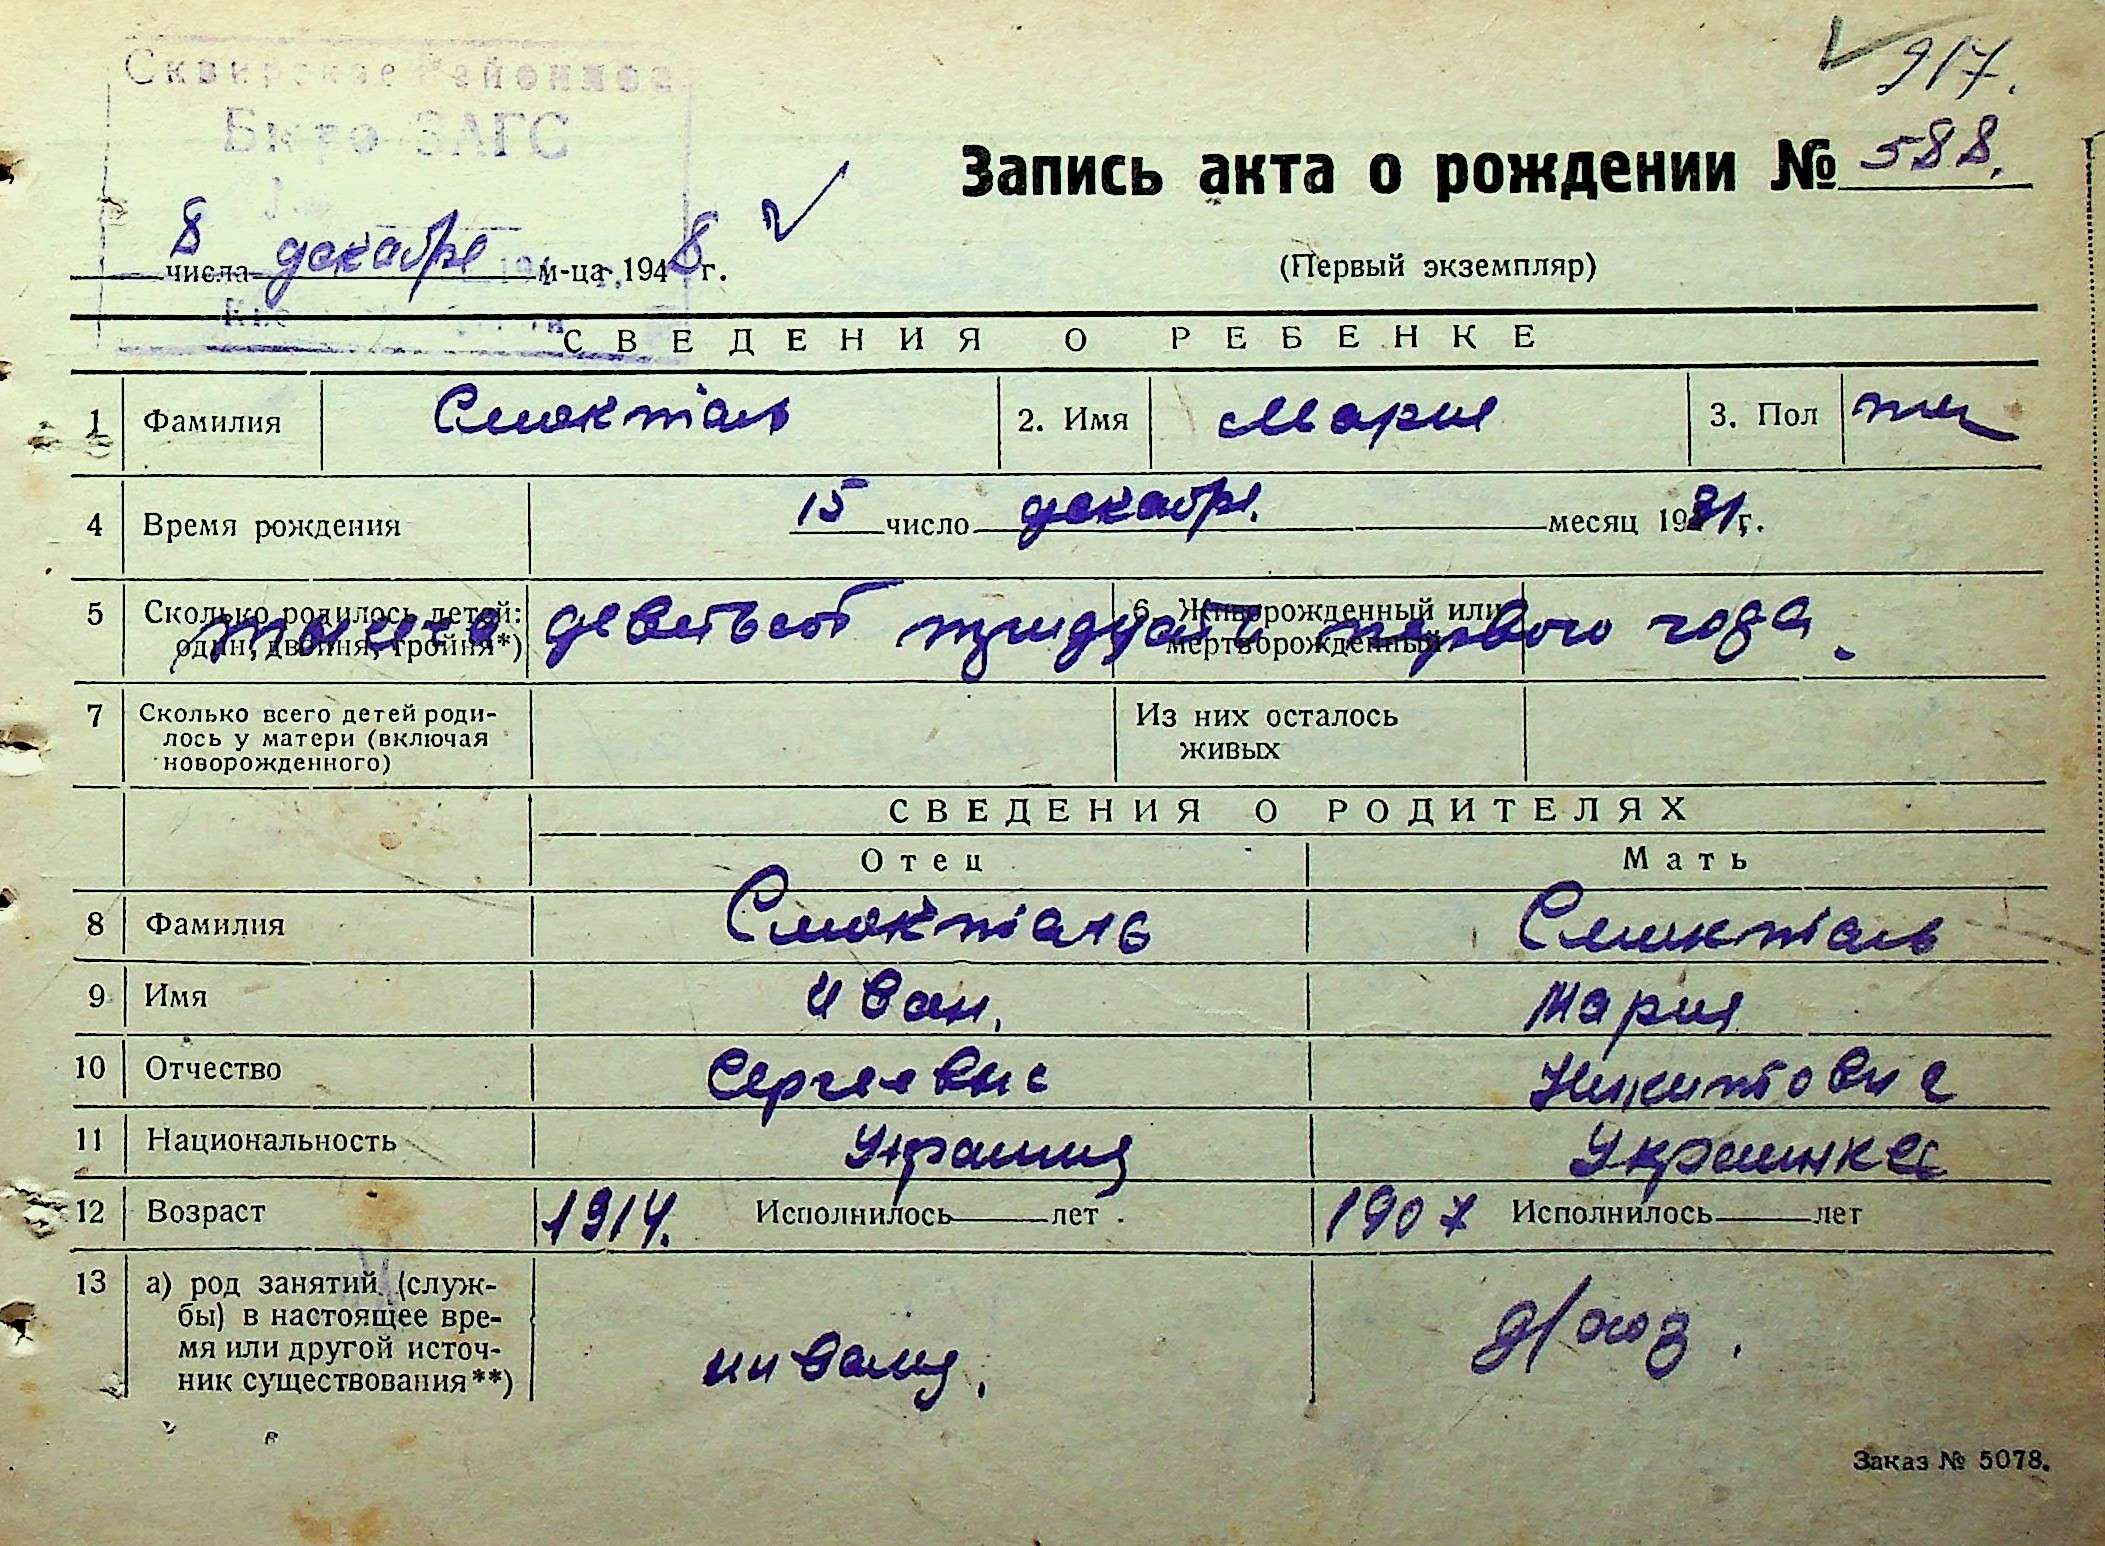 917.
Сквирское Районное
Бюро ЗАГС
Запись акта о рождении № 588.
8 числа декабря м-ца 1948 г.
(Первый экземпляр)
СВЕДЕНИЯ О РЕБЕНКЕ
1 Фамилия Смокталь 2. Имя Мария 3. Пол
4 Время рождения 15 число декабря. месяц 1931 г.
5 Сколько родилось детей: один, двойня, тройня*) 6. Живорожденный или мертворожденный
тысяча девятьсот тридцать первого года.
7 Сколько всего детей роди-
лось у матери (включая
новорожденного)
Из них осталось
живых
СВЕДЕНИЯ О РОДИТЕЛЯХ
Отец Мать
8 Фамилия Смокталь Смокталь
9 Имя Иван. Мария
10 Отчество Сергеевич Никитовна
11 Национальность Украинец Украинка
12 Возраст 1914. Исполнилось лет 1907 Исполнилось лет
13 а) род занятий (служ-
бы) в настоящее вре-
мя или другой источ-
ник существования**)
инвалид. д/хоз.
Заказ № 5078.